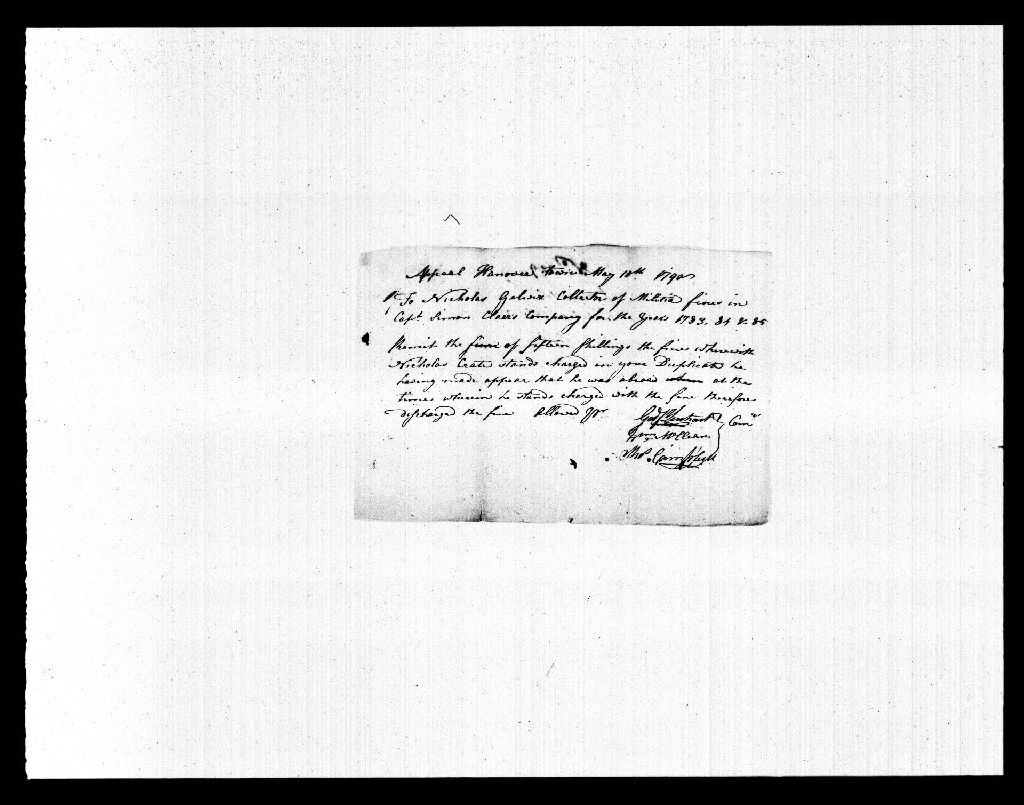 Appeal Hanover Town May 18th 1790
To Nicholas Gelwix Collector of Militia fines in
Capt. Simon Clairs Company for the Years 1783. 84 & 85
Remit the sum of fifteen Shillings the fine wherewith
Nicholas Crate stands charged in your Duplicate he
having made appear that he was above when at the
times wherein he stands charged with the fine therefore
discharged the fine Allowed
Wm McClean Comrs
Thos. Campbell